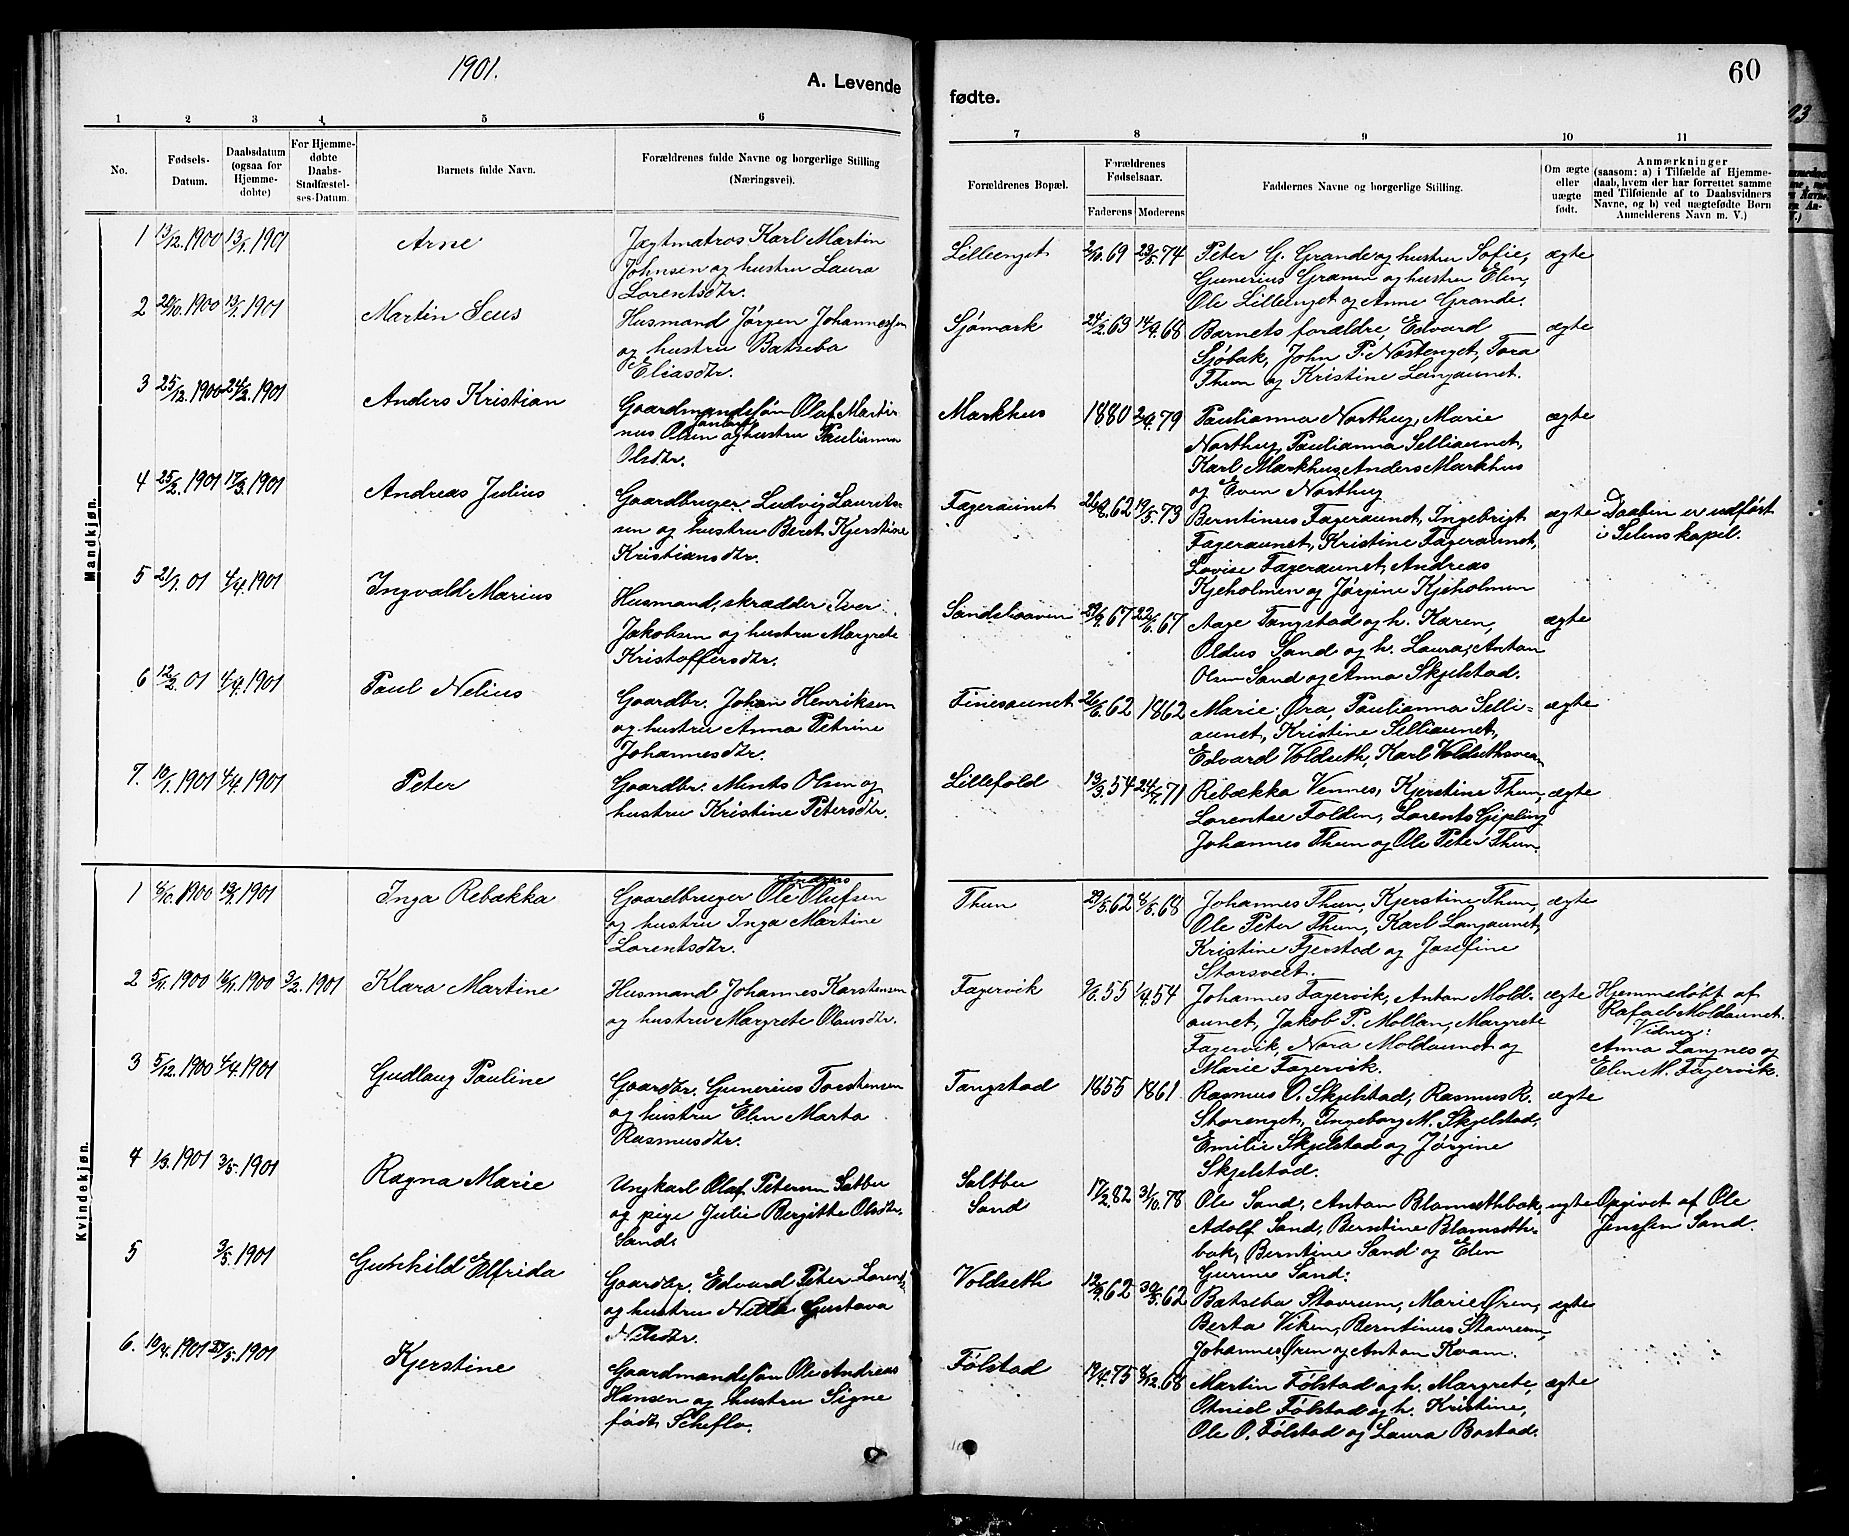 1901.
A. Levende
fødte.
60
1 2 3 4 5 6 7 8 9 10 11
No.
Fødsels-Datum.
Daabsdatum (ogsaa for Hjemmedøbte)
For Hjemmedøbte Daabs-Stadfæstelses-Datum.
Barnets fulde Navn.
Forældrenes fulde Navne og borgerlige Stilling
(Næringsvei).
Forældrenes Bopæl.
Forældrenes Fødselsaar.
Faderens Moderens
Faddernes Navne og borgerlige Stilling.
Om ægte eller uægte født.
Anmærkninger
(saasom: a) i Tilfælde af Hjemmedaab, hvem der har forrettet samme med Tilføiende af to Daabsvidners Navne, og b) ved uægtefødte Børn Anmelderens Navn m. V.)
Mandkjøn.
1 13/12.1900 13/1.1901 Arne
Jægtmatros Karl Martin
Johnsen og hustru Laura
Lorentsdtr.
Lilleenget 2/10.69 23/5.74
Peter G. Grande og hustru Sofie,
Gunerius Gramm og hustru Elen,
Ole Lilleenget og Anne Grande.
ægte
2 20/10.1900 13/1.1901 Martin Seus
Husmand Jørgen Johannessen
og hustru Batseba
Eliasdtr.
Sjømark 24/2.63 14/9.68
Barnets forældre, Edvard
Sjøbak, John P. Nostenget, Tora
Thun og Kristine Langaunet.
ægte
3 25/12.1900 24/2.1901 Anders Kristian
Gaardmandssøn Olaf Martinus
Olsen og hustru Paulianna
Olsdtr.
Markhus 1880 2/9.79
Paulianna Northug, Marie
Northug, Paulianna Selliaunet,
Karl Markhus, Anders Markhus
og Even Northug
ægte
4 25/2.1901 17/3.1901 Andreas Julius
Gaardbruger Ludvig Lauritssen
og hustru Beret Kjerstine
Kristiansdtr.
Fageraunet 26/8.62 19/5.73
Berntinus Fageraunet, Ingebrigt
Fageraunet, Kristine Fageraunet,
Lovise Fageraunet, Andreas
Kjeholmen og Jørgine Kjeholmen
ægte
Daaben er udført
i Selens kapel.
5 21/1.01 4/4.1901 Ingvald Marius
Husmand, skrædder Iver
Jakobsen og hustru Margrete
Kristoffersdtr.
29/9.67 22/6.67
Aage Tangstad og h. Karen,
Oldus Sand og h. Laura, Anton
Olsen Sand og Anna Skjelstad.
ægte
6 12/2.01 4/4.1901 Paul Nelius
Gaardbr. Johan Henriksen
og hustru Anna Petrine
Johannesdtr.
Finesaunet 26/6.62 1862
Marie Øra, Paulianna Selliaunet,
Kristine Selliaunet,
Edvard Voldseth, Karl Voldsethsvean
ægte
7. 10/1.1901 4/4.1901 Peter
Gaardbr. Ments Olsen og
hustru Kristine Petersdtr.
Lillefold 13/3.54 24/4.71
Rebækka Vennes, Kjerstine Thun,
Lorentse Folden, Lorents Gipling
Johannes Thun og Ole Peter Thun.
ægte
Kvindekjøn.
1 6/10.1900 13/1.1901 Inga Rebækka
Gaardbruger Ole Andreas Olufsen
og hustru Inga Martine
Lorentsdtr.
Thun 29/5.62 8/5.68
Johannes Thun, Kjerstine Thun,
Ole Peter Thun, Karl Langaunet,
Kristine Fjerstad og Josefine
Storsveet.
ægte
2 5/11.1900 16/11.1900 3/2.1901 Klara Martine
Husmand Johannes Karstensen
og hustru Margrete Olausdtr.
Fagervik 9/6.55 1/4.54
Johannes Fagervik, Anton Moldaunet,
Jakob P. Mollan, Margrete
Fagervik, Nora Moldaunet og
Marie Fagervik.
ægte
Hjemmedøbt af
Rafael Moldaunet.
Vidner:
Anna Langnes og
Elen M. Fagervik.
3 5/12.1900 4/4.1901 Gudlaug Pauline
Gaardbr. Gunerius Torstensen
og hustru Elen Marta
Rasmusdtr.
Tangstad 1855 1861
Rasmus O. Skjelstad, Rasmus R.
Storenget, Ingeborg M. Skjelstad,
Emilie Skjelstad og Jørgine
Skjelstad.
ægte
4 1/3.1901 3/5.1901 Ragna Marie
Ungkarl Olaf Petersen Saltbu
og pige Julie Bergitte Olsdtr.
Sand.
Saltbu
Sand
17/2.82 31/10.78
Ole Sand, Anton Blamsethbak,
Adolf Sand, Berntine Blamsethbak,
Berntine Sand og Elen
Gurine Sand.
uægte
Opgivet af Ole
Jenssen Sand.
5 3/5.1901 Gunhild Elfrida
Gaardbr. Edvard Peter Lorents.
og hustru Netta Gustava
Nilsdtr.
Voldseth 12/9.62 30/5.62
Batseba Stavrum, Marie Øren,
Berta Viken, Berntinus Stavrum,
Johannes Øren og Anton Kvam.
ægte
6. 10/4.1901 27/5.1901 Kjerstine
Gaardmandssøn Ole Andreas
Hansen og hustru Signe
født Scheflo.
Følstad 19/4.75 8/12.68
Martin Følstad og h. Margrete,
Otniel Følstad og h. Kristine,
Ole O. Følstad og Laura Bostad.
ægte